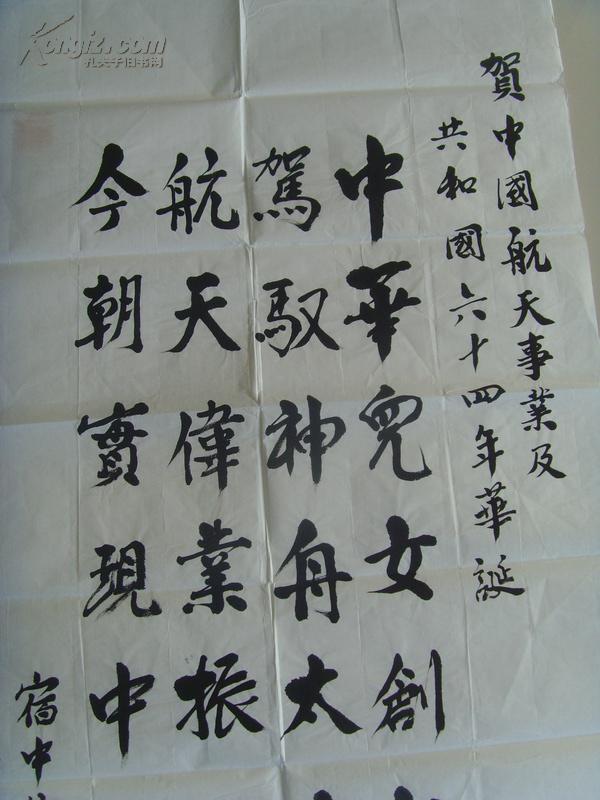 賀中國航天事業及
共和國六十四年華誕
中華兒女創
駕馭神舟太
航天偉業振
今朝實現中
宿中
Kongfz.com
孔夫子旧书网